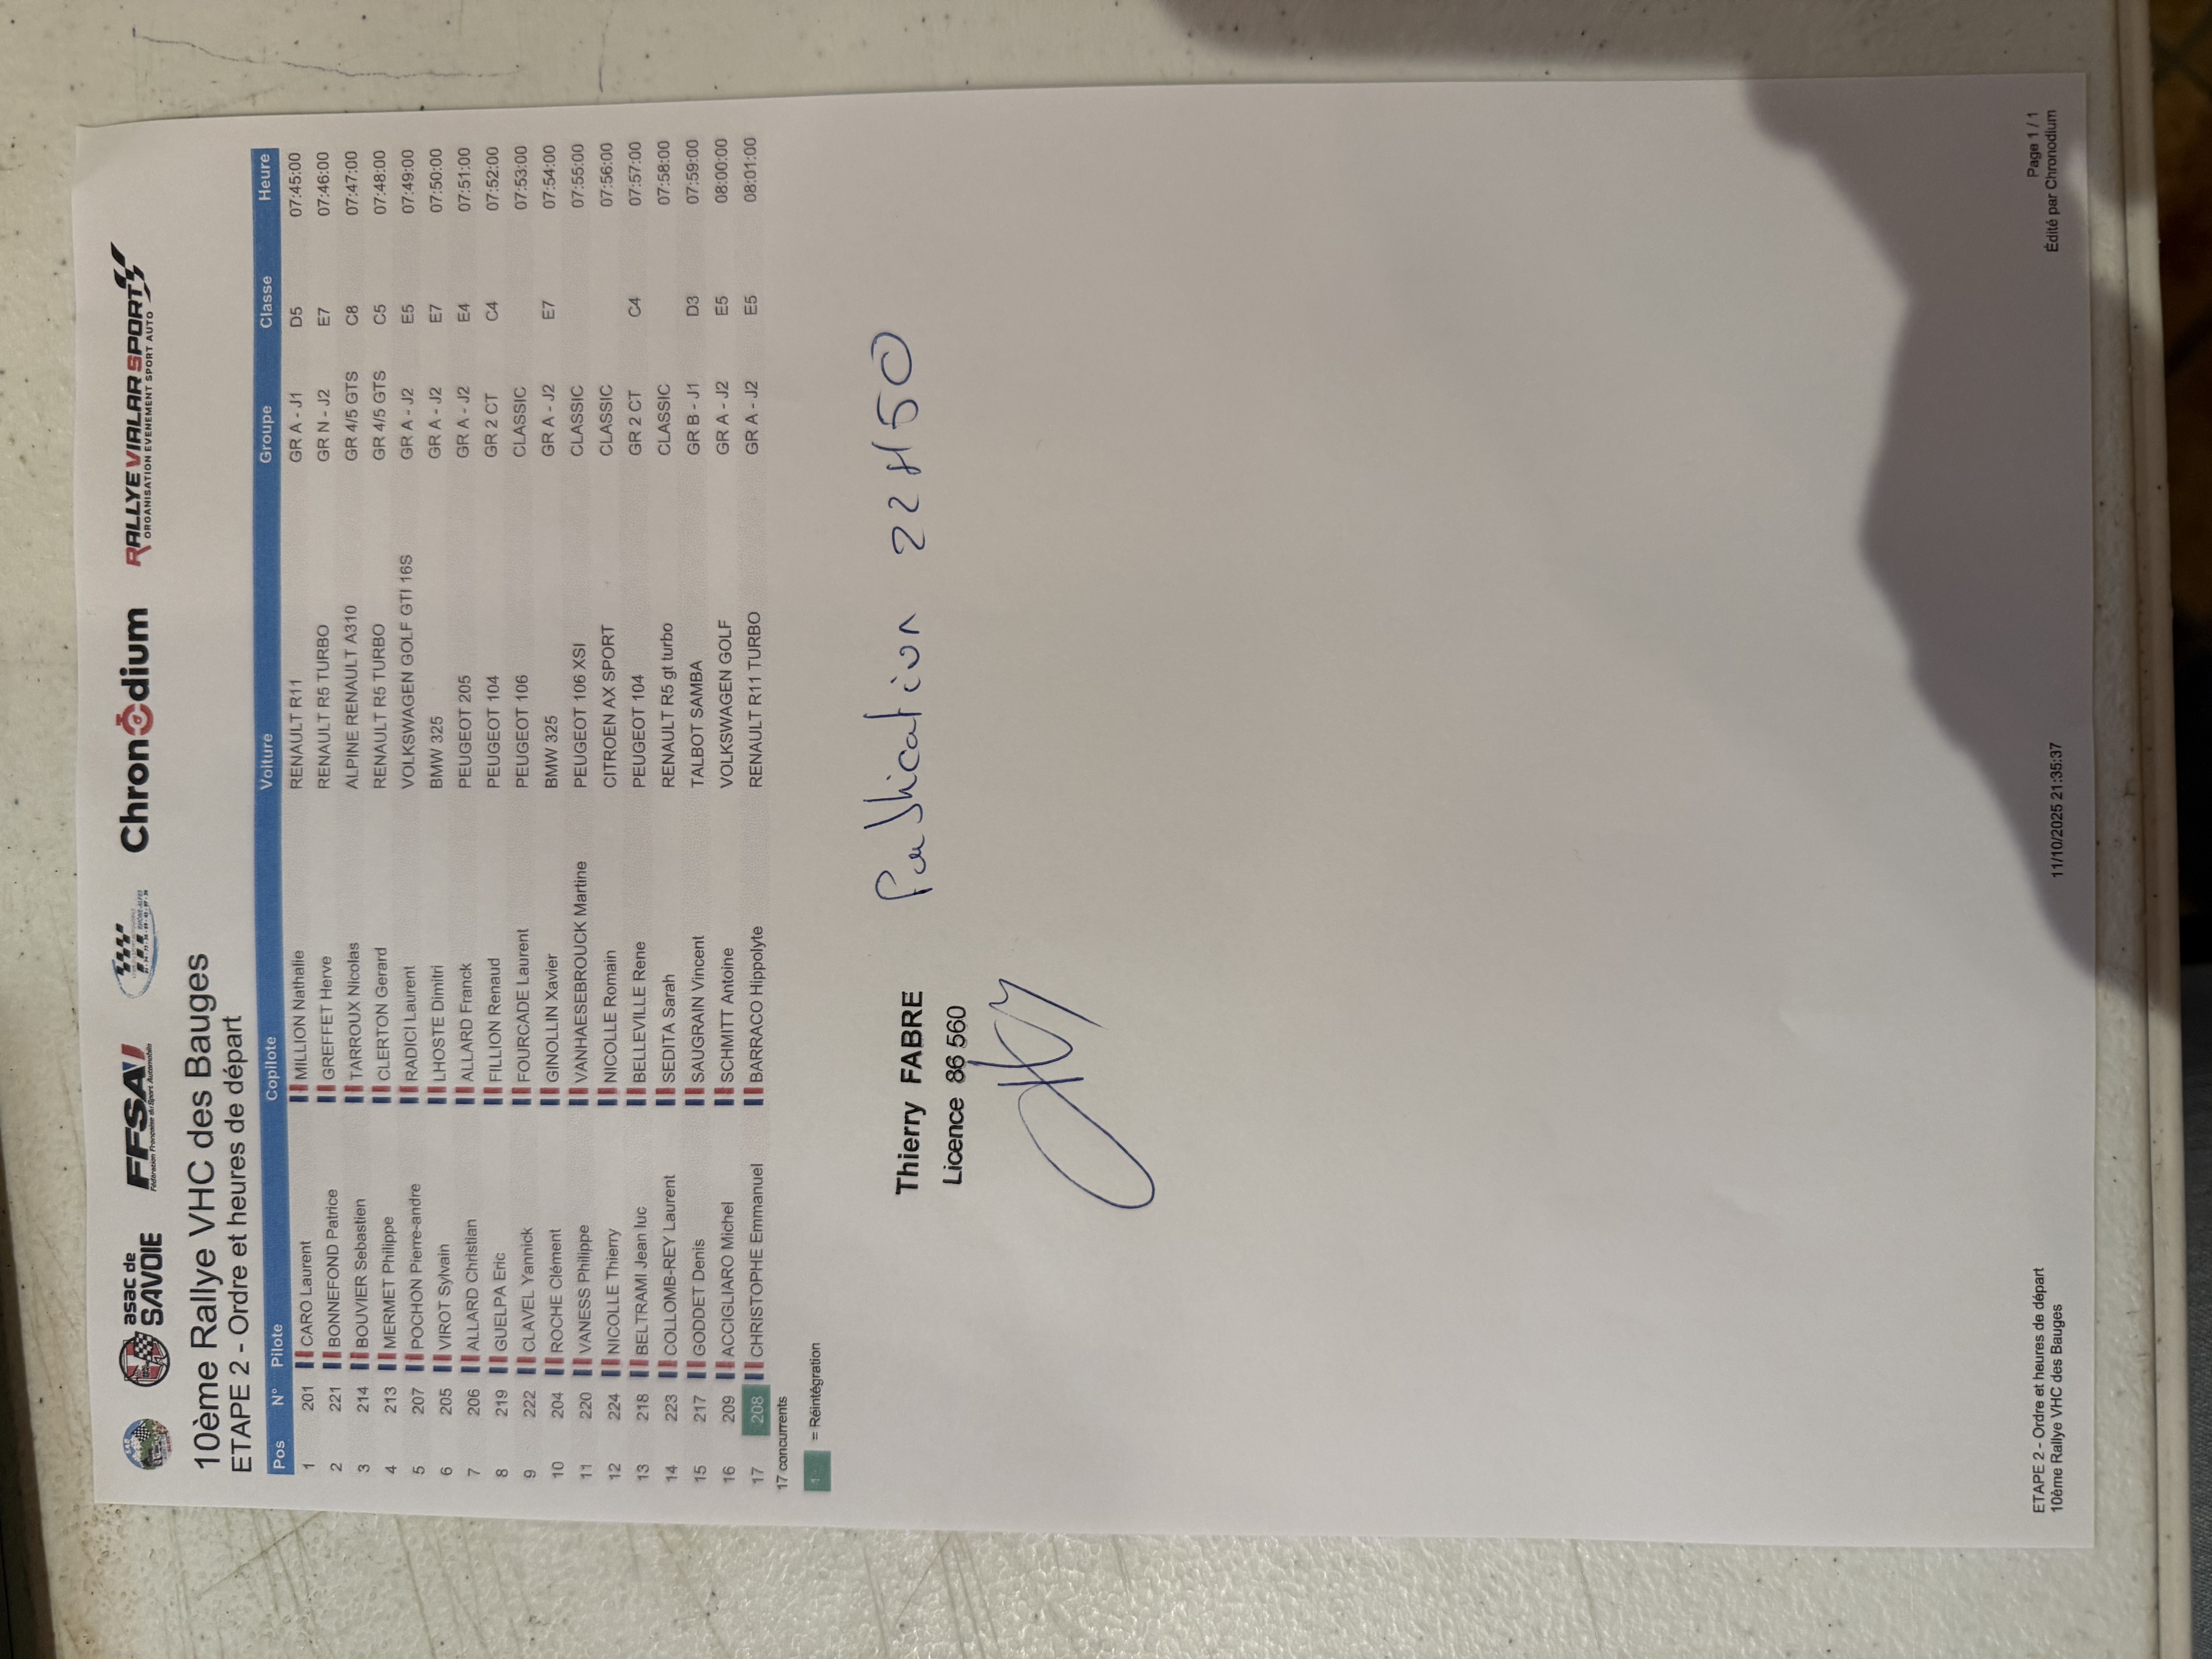 asac de
SAVOIE
FFSA
Fédération Française du Sport Automobile
Chronodium
RALLYEVIALARSPORT
ORGANISATION EVENEMENT SPORT AUTO
10ème Rallye VHC des Bauges
ETAPE 2 - Ordre et heures de départ
Pos N° Pilote Copilote Voiture Groupe Classe Heure
1 201 CARO Laurent MILLION Nathalie RENAULT R11 GR A - J1 D5 07:45:00
2 221 BONNEFOND Patrice GREFFET Herve RENAULT R5 TURBO GR N - J2 E7 07:46:00
3 214 BOUVIER Sebastien TARROUX Nicolas ALPINE RENAULT A310 GR 4/5 GTS C8 07:47:00
4 213 MERMET Philippe CLERTON Gerard RENAULT R5 TURBO GR 4/5 GTS C5 07:48:00
5 207 POCHON Pierre-andre RADICI Laurent VOLKSWAGEN GOLF GTI 16S GR A - J2 E5 07:49:00
6 205 VIROT Sylvain LHOSTE Dimitri BMW 325 GR A - J2 E7 07:50:00
7 206 ALLARD Christian ALLARD Franck PEUGEOT 205 GR A - J2 E4 07:51:00
8 219 GUELPA Eric FILLION Renaud PEUGEOT 104 GR 2 CT C4 07:52:00
9 222 CLAVEL Yannick FOURCADE Laurent PEUGEOT 106 CLASSIC 07:53:00
10 204 ROCHE Clément GINOLLIN Xavier BMW 325 GR A - J2 E7 07:54:00
11 220 VANESS Philippe VANHAESEBROUCK Martine PEUGEOT 106 XSI CLASSIC 07:55:00
12 224 NICOLLE Thierry NICOLLE Romain CITROEN AX SPORT CLASSIC 07:56:00
13 218 BELTRAMI Jean luc BELLEVILLE Rene PEUGEOT 104 GR 2 CT C4 07:57:00
14 223 COLLOMB-REY Laurent SEDITA Sarah RENAULT R5 gt turbo CLASSIC 07:58:00
15 217 GODDET Denis SAUGRAIN Vincent TALBOT SAMBA GR B - J1 D3 07:59:00
16 209 ACCIGLIARO Michel SCHMITT Antoine VOLKSWAGEN GOLF GR A - J2 E5 08:00:00
17 208 CHRISTOPHE Emmanuel BARRACO Hippolyte RENAULT R11 TURBO GR A - J2 E5 08:01:00
17 concurrents
= Réintégration
Thierry FABRE
Licence 86 560
Publication 22H50
ETAPE 2 - Ordre et heures de départ
10ème Rallye VHC des Bauges
11/10/2025 21:35:37
Page 1 / 1
Édité par Chronodium